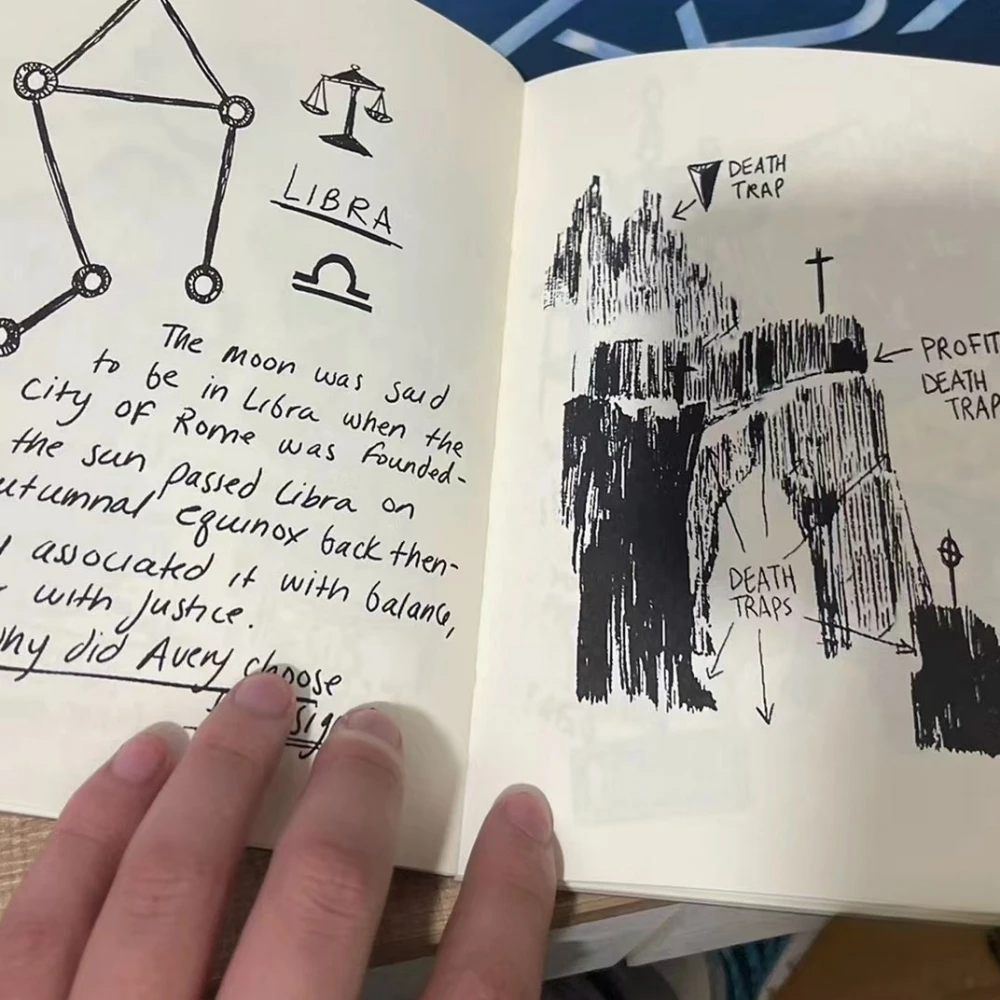 LIBRA
The moon was said
to be in Libra when the
City of Rome was founded-
the sun passed Libra on
autumnal equinox back then-
associated it with balance,
with justice.
why did Avery choose
DEATH
TRAP
PROFIT
DEATH
TRAP
DEATH
TRAPS